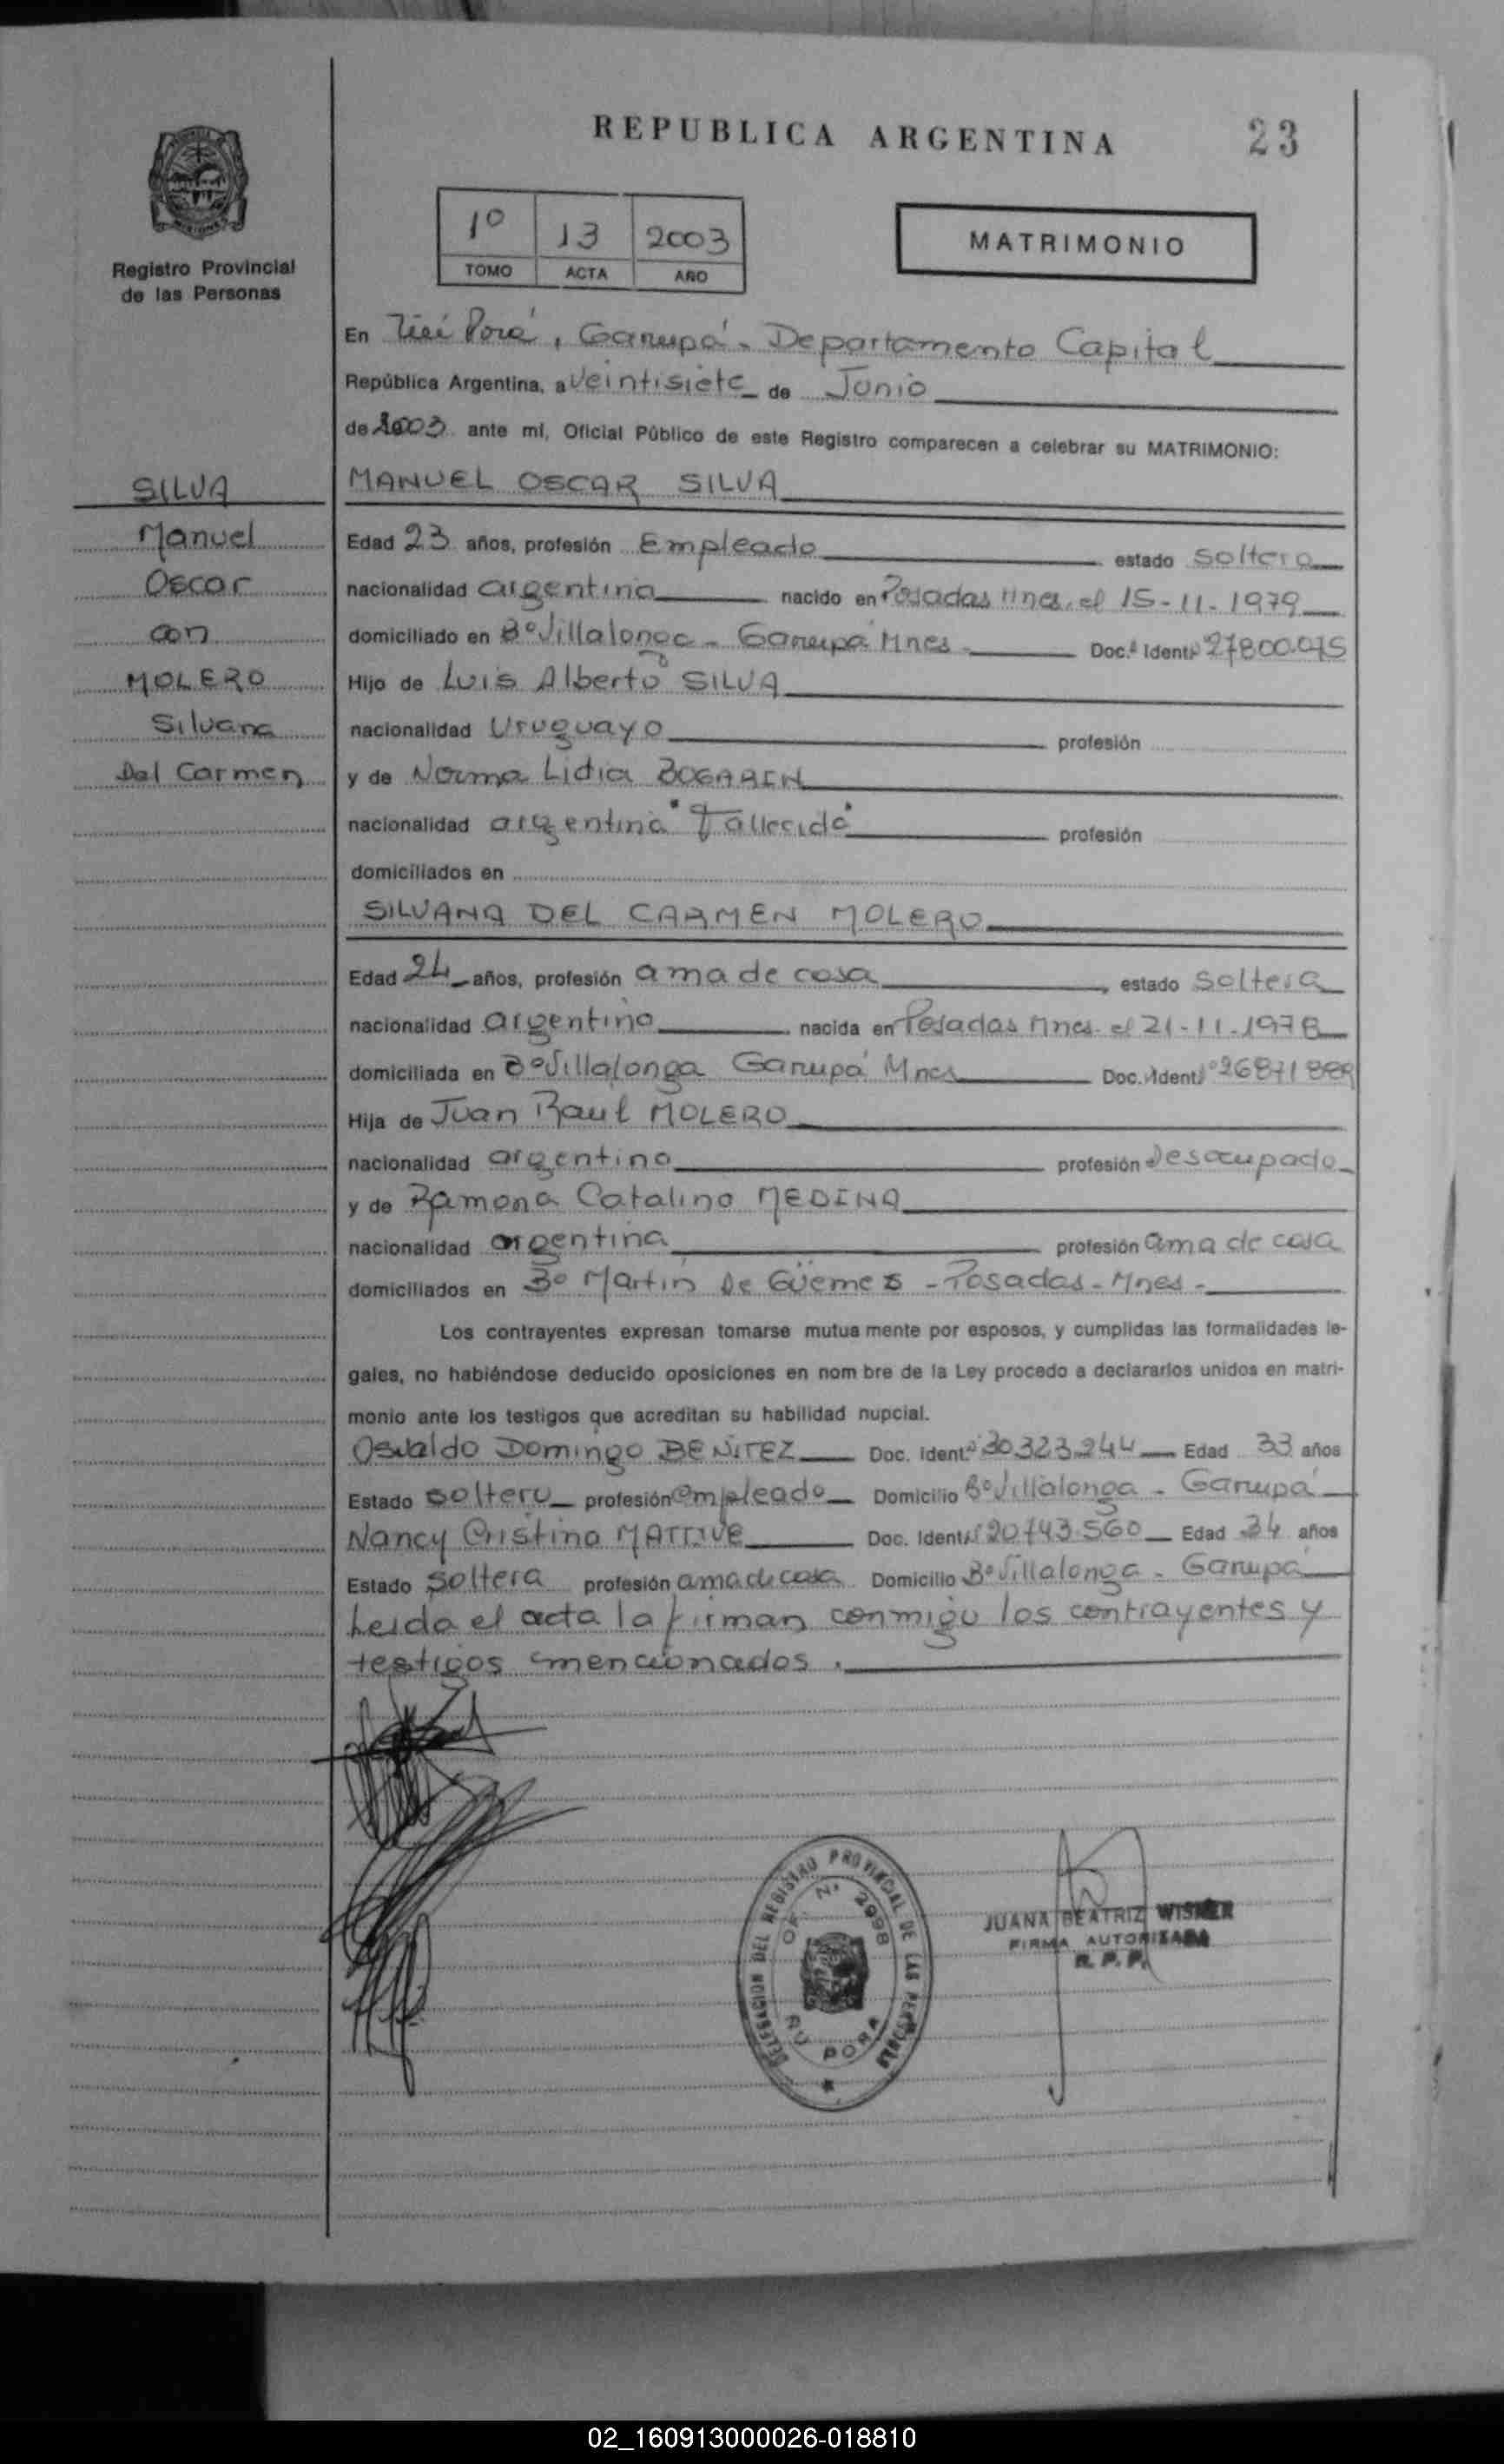 REPUBLICA ARGENTINA 23
Registro Provincial
de las Personas
1º 13 2003
TOMO ACTA AÑO
MATRIMONIO
En Porá, Garupá - Departamento Capital
República Argentina, a veintisiete de Junio
de 2003 ante mí, Oficial Público de este Registro comparecen a celebrar su MATRIMONIO:
SILVA
Manuel
Oscar
con
MOLERO
Silvana
Del Carmen
MANUEL OSCAR SILVA
Edad 23 años, profesión Empleado estado soltero
nacionalidad argentina nacido en Posadas Mnes. el 15-11-1979
domiciliado en Bº Villalonga - Garupá Mnes - Doc. Ident.
Hijo de Luis Alberto SILVA
nacionalidad Uruguayo profesión
y de Norma Lidia
nacionalidad argentina "Fallecida" profesión
domiciliados en
SILVANA DEL CARMEN MOLERO
Edad 24 años, profesión ama de casa estado soltera
nacionalidad argentina nacida en Posadas Mnes. el 21-11-1978
domiciliada en Bº Villalonga Garupá Mnes Doc. Ident. 26871889
Hija de Juan Raul MOLERO
nacionalidad argentino profesión Desocupado
y de Ramona Catalina MEDINA
nacionalidad argentina profesión ama de casa
domiciliados en Bº Martin De Güemes - Posadas - Mnes -
Los contrayentes expresan tomarse mutua mente por esposos, y cumplidas las formalidades le-
gales, no habiéndose deducido oposiciones en nom bre de la Ley procedo a declararlos unidos en matri-
monio ante los testigos que acreditan su habilidad nupcial.
Osvaldo Domingo BENITEZ Doc. Ident. 30.323.244 Edad 33 años
Estado soltero profesión empleado Domicilio Bº Villalonga - Garupá
Nancy Cristina Doc. Ident. 20743.560 Edad 34 años
Estado soltera profesión ama de casa Domicilio Bº Villalonga - Garupá
Leida el acta la firman conmigo los contrayentes y
testigos mencionados.
DELEGACION DEL REGISTRO PROVINCIAL DE LAS PERSONAS
OF. Nº 2998
ÑU PORA
JUANA BEATRIZ
FIRMA AUTORIZADA
R. P. P.
02_160913000026-018810